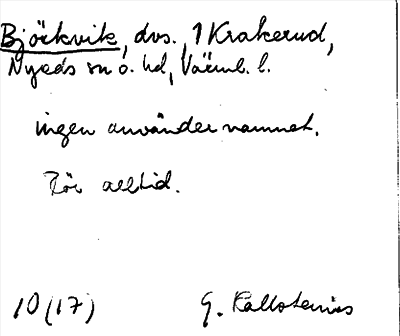 Björkvik, dvs. 1 Krakerud,
Nyeds sn o. hd, Värml. l.
ingen använder namnet.
För alltid.
10(17)
G. Kallstenius